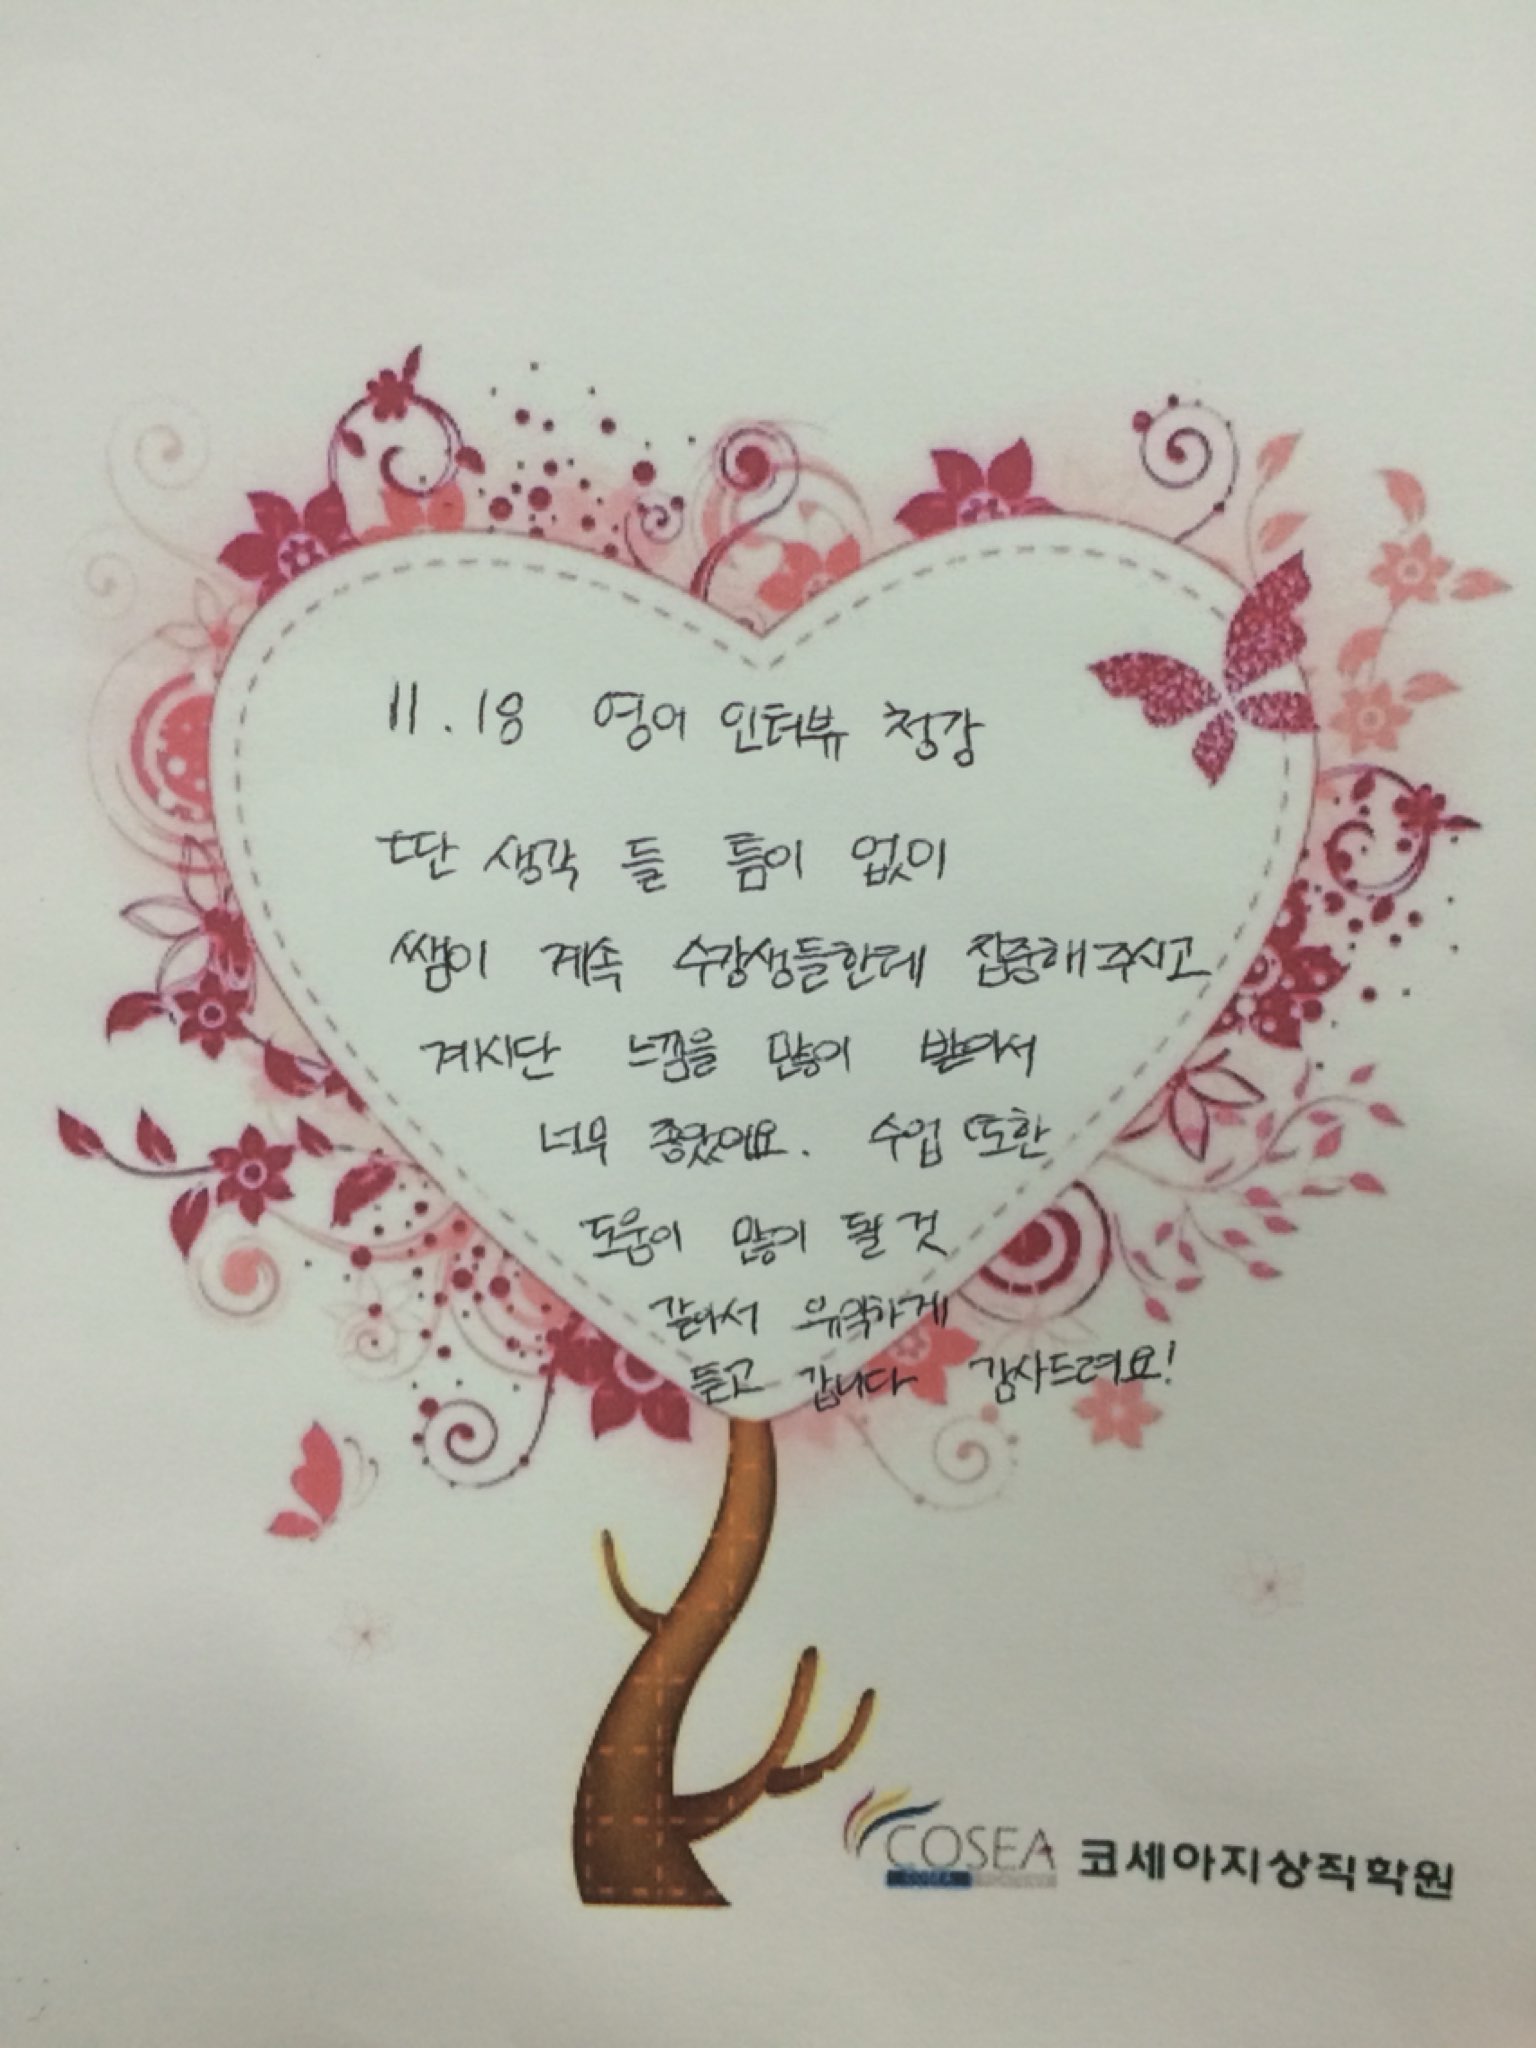 11.18 영어 인터뷰 청강
딴 생각 들 틈이 없이
쌤이 계속 수강생들한테 집중해주시고
계시단 느낌을 많이 받아서
너무 좋았어요. 수업 또한
도움이 많이 될 것
같아서 유익하게
듣고 갑니다 감사드려요!
COSEA 코세아지상직학원